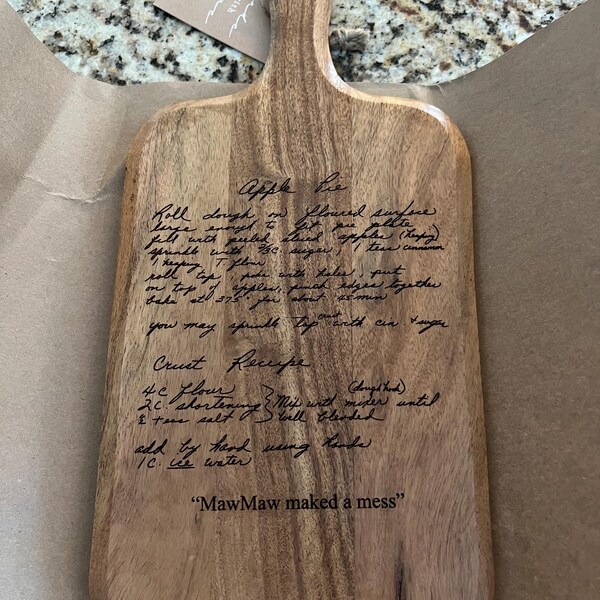 Apple Pie
Roll dough on floured surface
large enough to fit pie plate
fill with peeled sliced apples (heaping)
sprinkle with C sugar, 1 teas cinnamon
1 heaping T flour
roll top, poke with holes, put
on top of apples, pinch edges together
bake at 375° for about 45 min
you may sprinkle top crust with cin + sugar
Crust Receipe
4 C flour
2 C. shortening } Mix with mixer until (dough hook)
2 teas salt well blended
add by hand using hands
1 C. ice water
“MawMaw maked a mess”